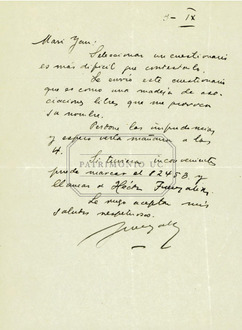 9- IX
Mari Yan:
Seleccionar un cuestionario
es más difícil que contestarlo.
Le envío este cuestionario
que es como una madeja de aso-
ciaciones libres que me provoca
su nombre.
Perdone las imprudencias
y espero verla mañana a las
4.
Si tuviera inconveniente
puede marcar el 82453. y
llamar a Héctor Fuenzalida.
Le ruego aceptar mis
saludos respetuosos.
PATRIMONIO UC